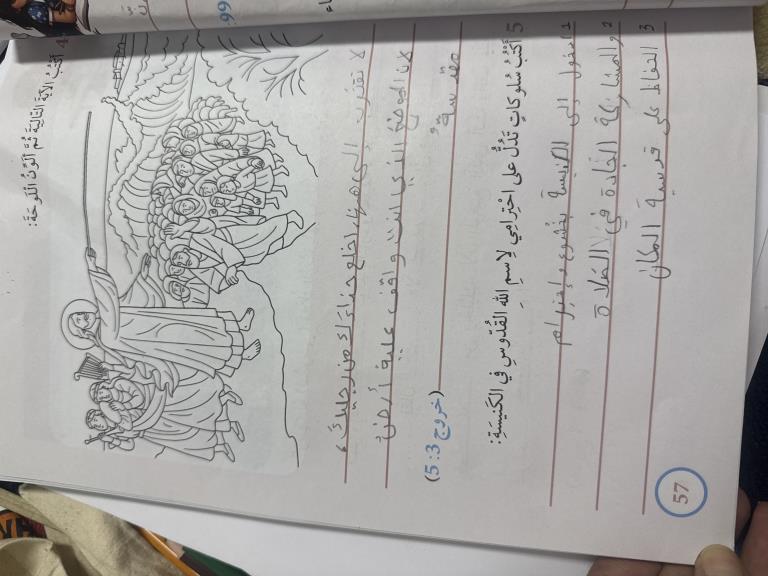 4 أَكْتُبُ الآيَةَ التّالِيَةَ ثُمَّ أُلَوِّنُ اللَّوْحَةَ:
لا تقترب إلى هنا، اخلع حذاءك من رجليك،
لان الموضع الذي انت واقف علية أرضٌ
مقدسةٌ
(خروج 3: 5)
5 أَكْتُبُ سُلوكاتٍ تَدُلُّ على احْتِرامي لِاسْمِ اللهِ القُدّوسِ في الكَنيسَةِ:
1 الدخول إلى الكنيسة بخشوع وإحترام
2 والمشاركة الجادة في الصلاة
3 الحفاظ على قدسية المكان
57
99